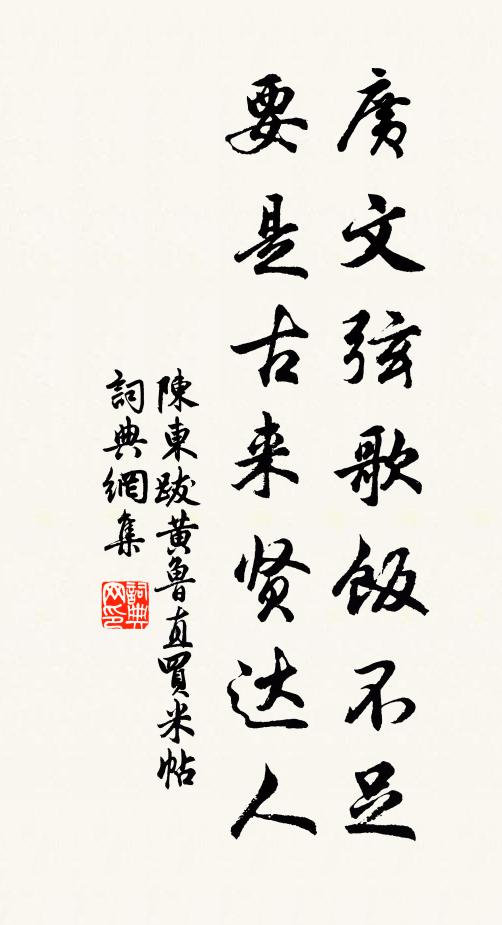 廣文弦歌飯不足
要是古来贤达人
陳東跋黄魯直買米帖
詞典網集
詞典网印